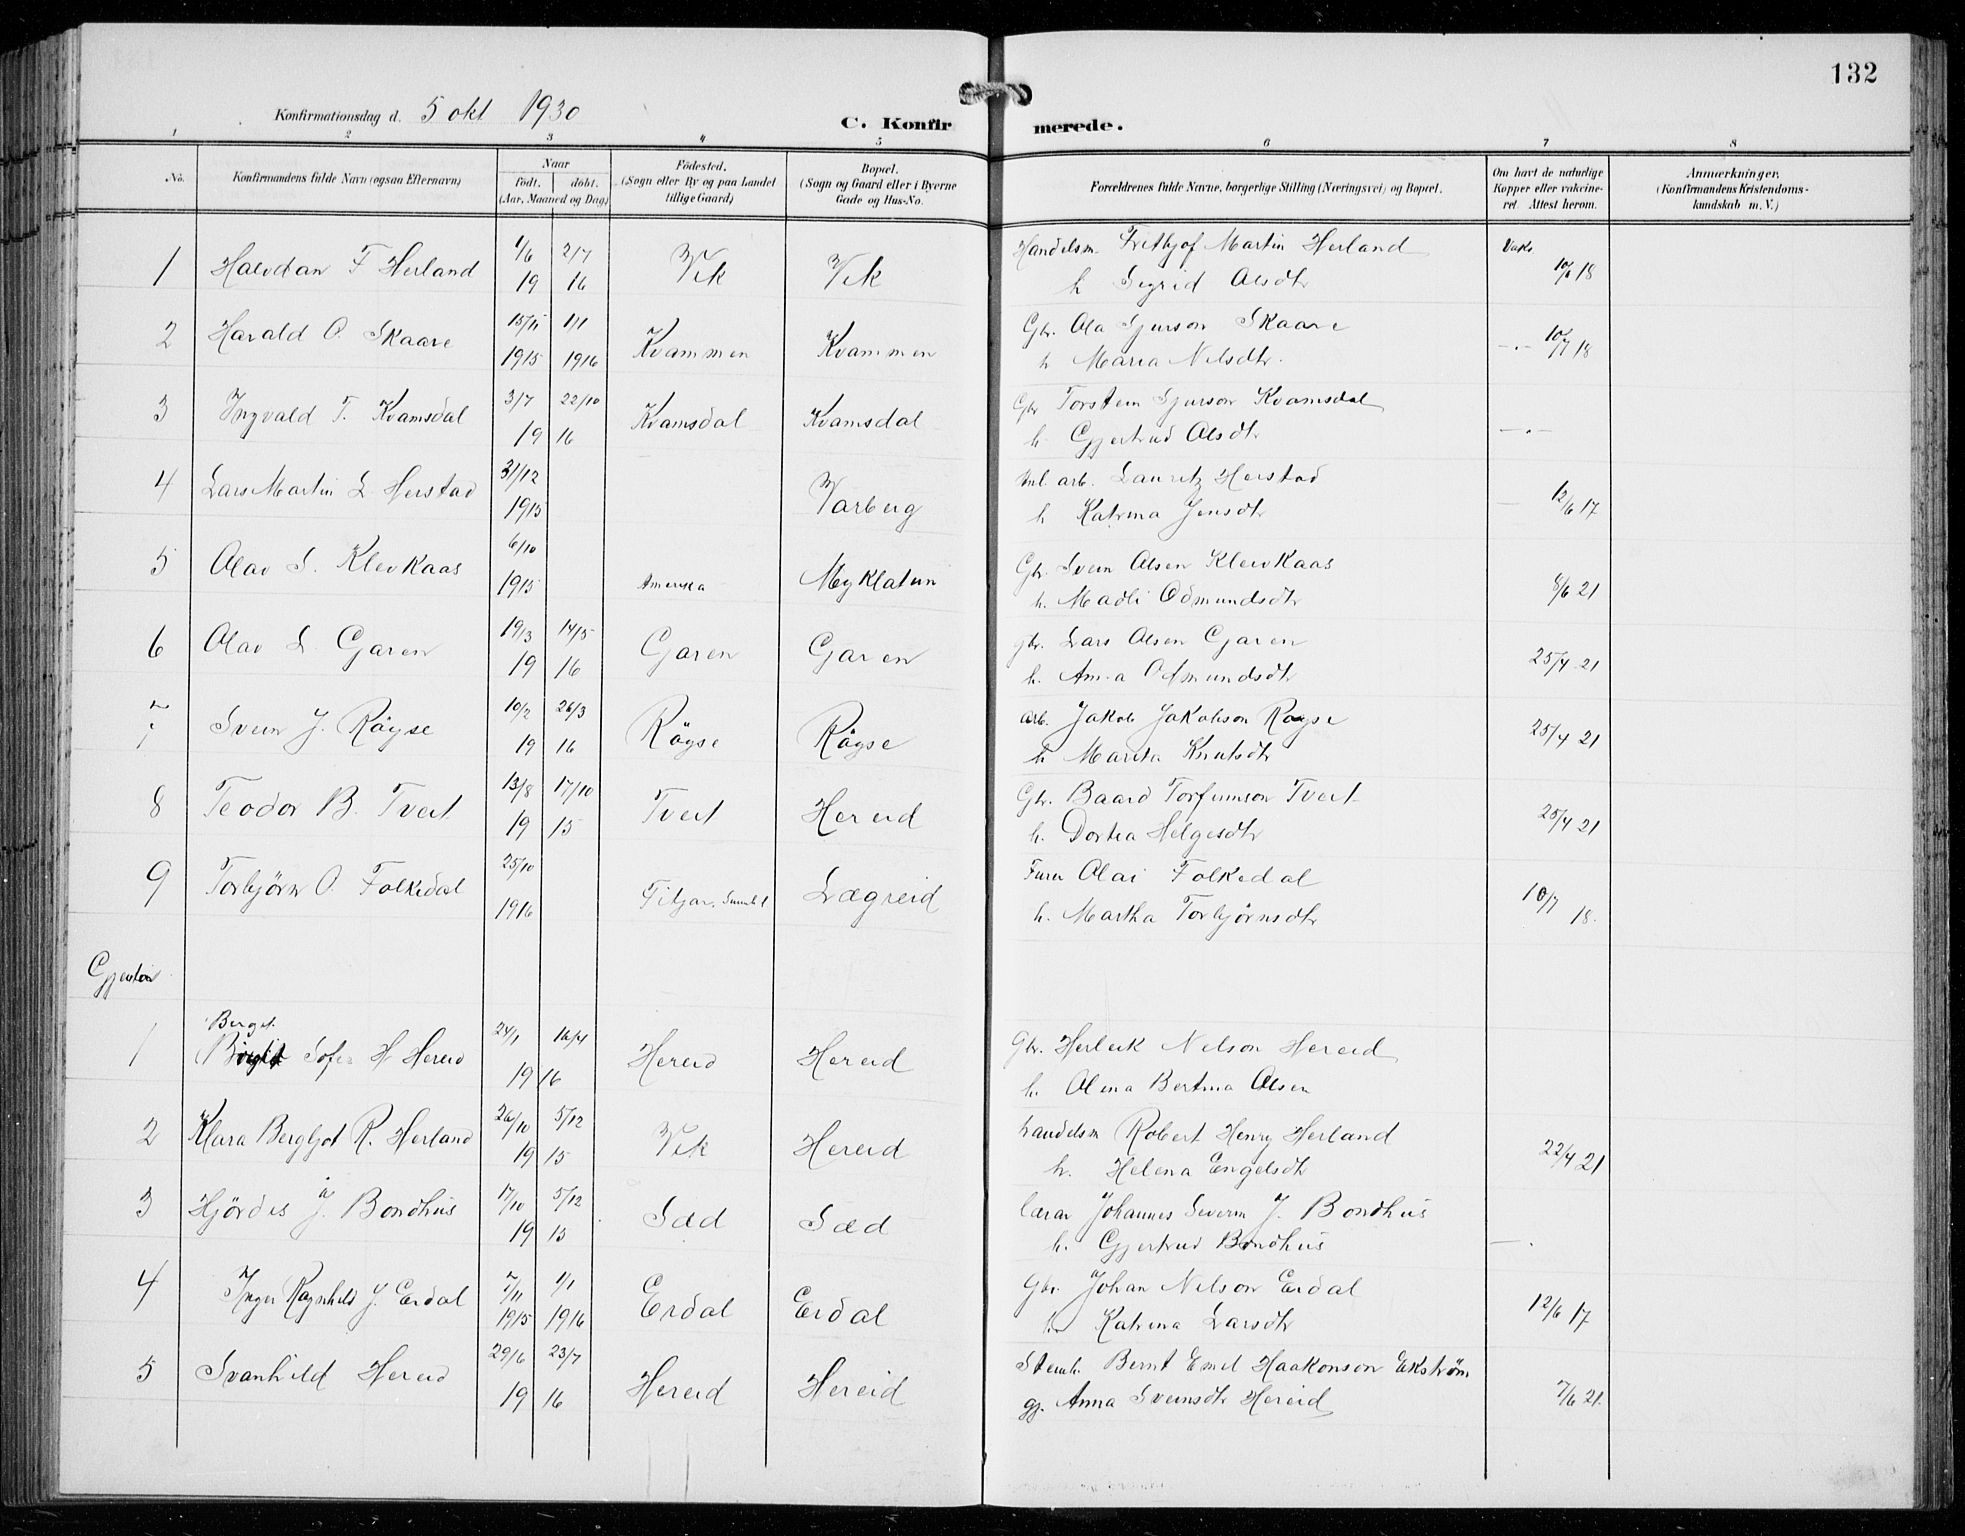 132
Konfirmationsdag d. 5 okt 1930
C. Konfirmerede.
1 2 3 4 5 6 7 8
No. Konfirmandens fulde Navn (ogsaa Efternavn) Naar födt. döbt. (Aar, Maaned og Dag) Födested. (Sogn eller By og paa Landet tillige Gaard) Bopæl. (Sogn og Gaard eller i Byerne Gade og Hus-No. Forældrenes fulde Navne, borgerlige Stilling (Næringsvei) og Bopæl. Om havt de naturlige Kopper eller vakcineret. Attest herom. Anmærkninger. (Konfirmandens Kristendomskundskab m. V.)
1 Halvdan F Herland 1/6 2/7 Vik Vik Handelsm. Frithjof Martin Herland Vaks.
19 16 h Sigrid Olsdtr 18
2 Harald O. Skaare 15/11 1/1 Kvammen Kvammen Gbr. Ola Sjurson Skaare
1915 1916 h Maria Nilsdtr. 10/7 18
3 Ingvald T. Kvamsdal 3/7 22/10 Kvamsdal Kvamsdal Gbr Torstein Sjurson Kvamsdal
19 16 h. Gjertrud Olsdtr —.—
4 Lars Martin L. Herstad 31/12 Varberg arb. Lauritz Herstad
1915 h Katrina Jensdtr — 12/6 17
5 Olav S. Klevkaas 6/10 Amerika Myklatun Gbr. Svein Olsen Kleivkaas
1915 h. Madli Odmundsdtr 8/6 21
6 Olav L. Garen 19/3 14/5 Garen Garen gbr. Lars Olsen Garen
19 16 h. Anna Osmundsdtr 25/4 21
7 Svein J. Röyse 10/2 26/3 Röyse Röyse arb. Jakob Jakobson Røyse
19 16 h Marita Knutsdtr 25/4 21
8 Teodor B. Tveit 13/8 17/10 Tveit Hereid Gbr. Baard Torfinnson Tveit
19 15 h. Dortea Helgesdtr 25/4 21
9 Torbjørn O. Folkedal 25/10 Fitjar, Lægreid Olai Folkedal
1916 h. Martha Torbjørnsdtr 10/7 18.
Gjentor
Berget
1 Sofie H Hereid 24/1 16/4 Hereid Hereid Gbr. Herleik Nelson Hereid
19 16 h. Olina Bertina Olsen
2 Klara Bergljot R. Herland 26/10 5/12 Vik Hereid handelsm Robert Henry Herland
19 15 h. Helena Engelsdtr 22/4 21
3 Hjördis J. Bondhus 17/10 5/12 Sæd Sæd lærar Johannes Severin J. Bondhus
19 15 h. Gjertrud Bondhus —.
4 Inger Ragnhild J. Erdal 7/11 1/1 Erdal Erdal Gbr. Johan Nilson Erdal
1915 1916 h Katrina Larsdtr 12/6 17
5 Svanhild Hereid 29/6 23/7 Hereid Hereid Bernt Emil Haakonson Ekstrøm
19 16 gj. Anna Sveinsdtr Hereid 7/6 21.